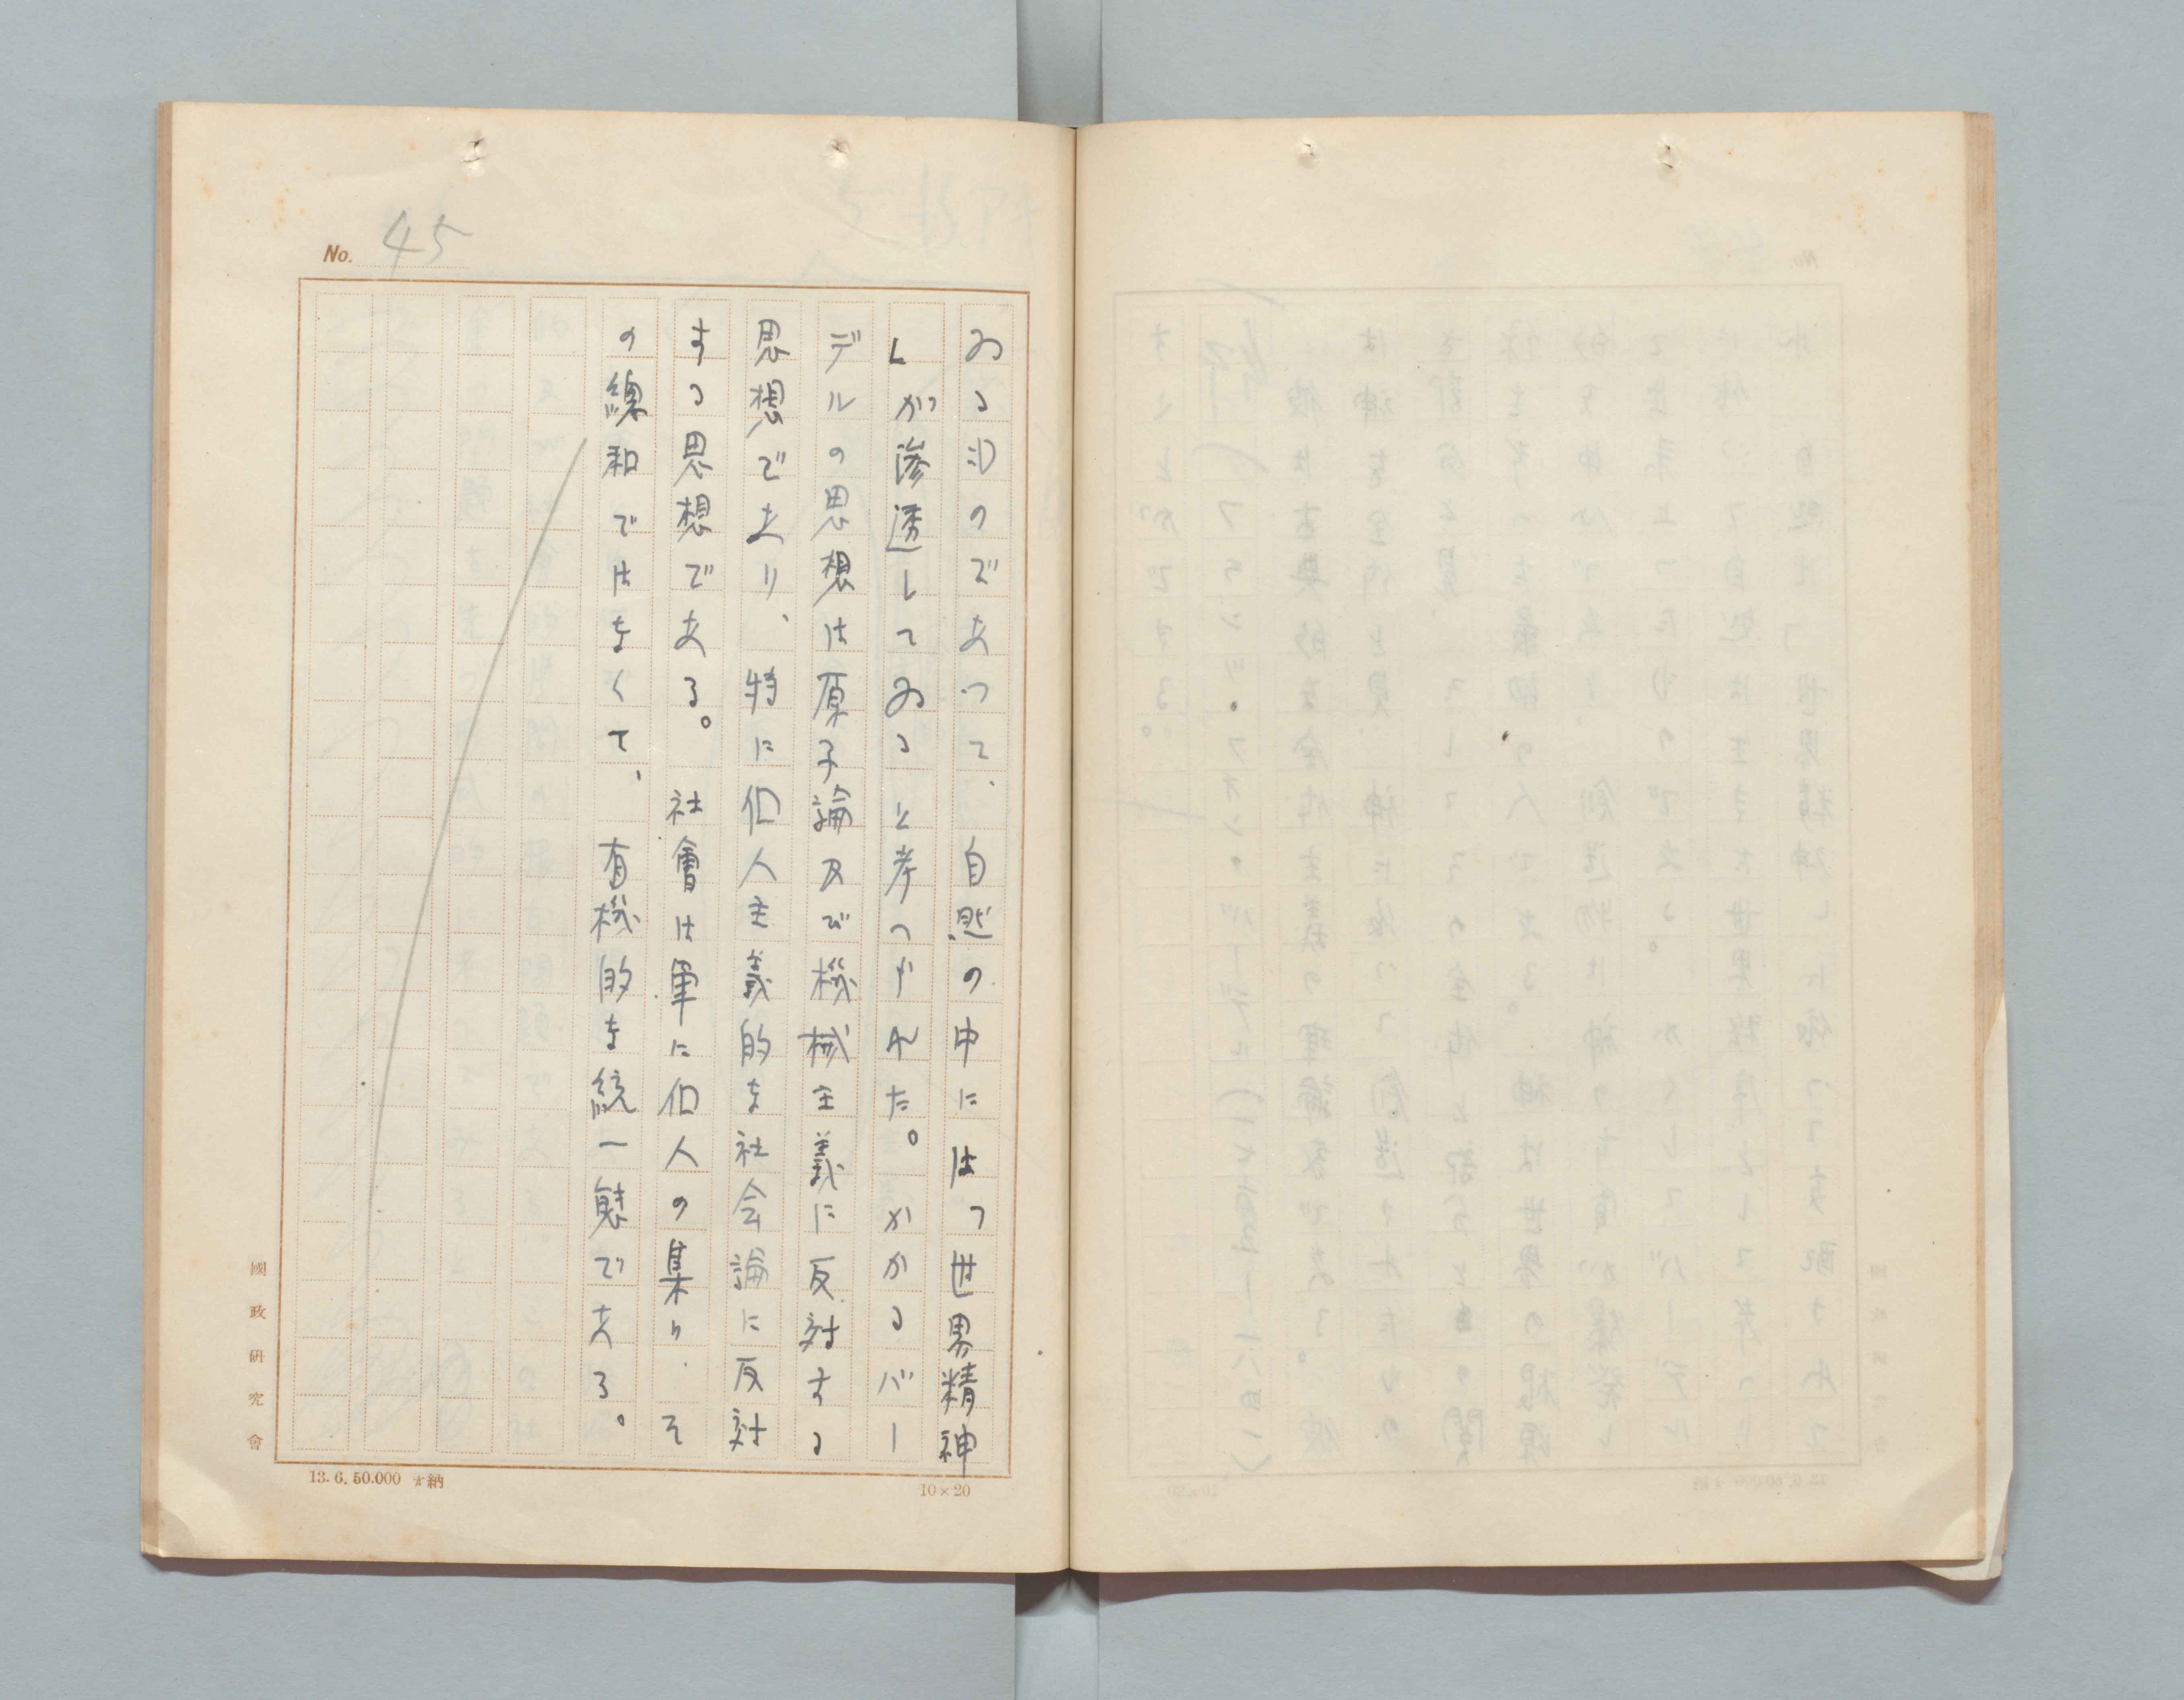 No. 45
ゐるものであつて、自然の中には「世界精神
」が滲透してゐると考へられた。かかるバー
デルの思想は原子論及び機械主義に反対する
思想であり、特に個人主義的な社会論に反対
する思想である。社會は単に個人の集り、そ
の總和ではなくて、有機的な統一態である。
國政研究會
13.6.50.000 納
10×20